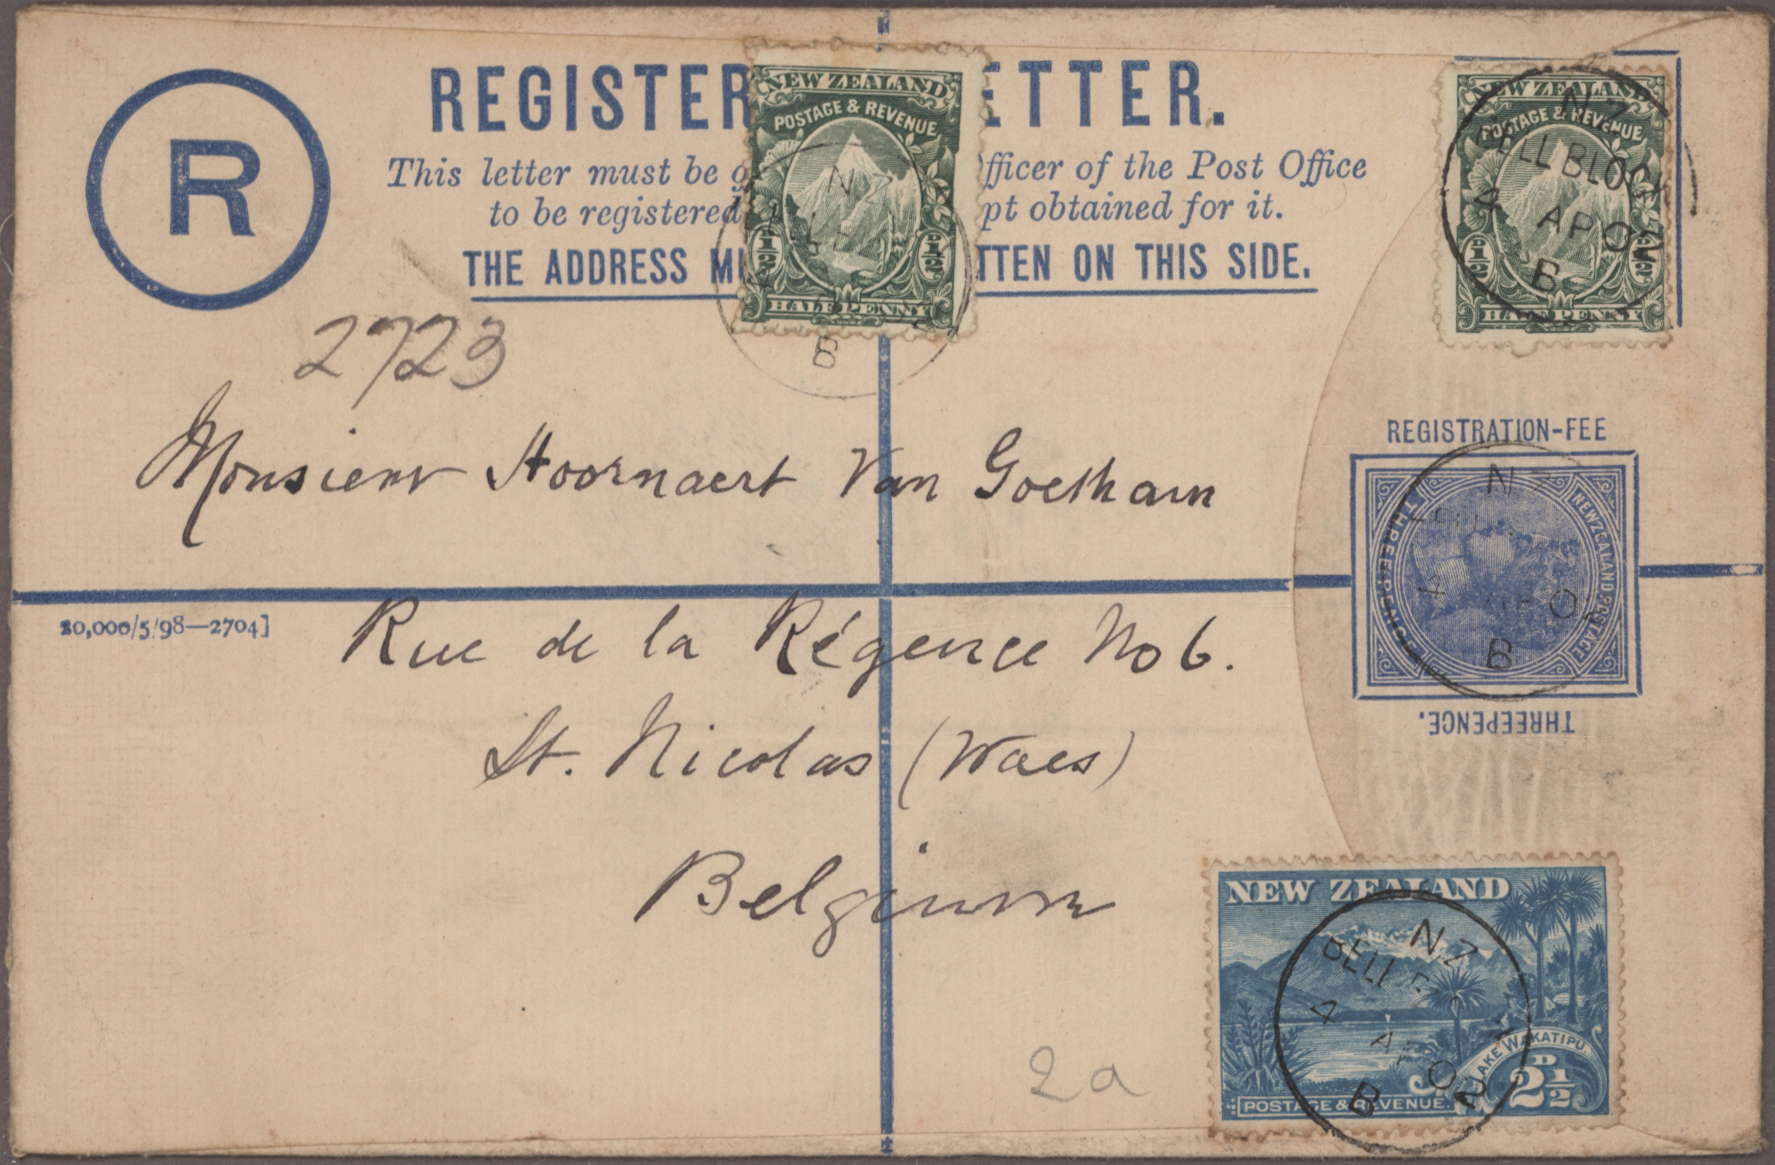 R
REGISTER ETTER.
This letter must be g fficer of the Post Office
to be registered pt obtained for it.
THE ADDRESS MU TTEN ON THIS SIDE.
NEW ZEALAND
POSTAGE & REVENUE
D 1/2
D 1/2
HALF PENNY
N Z
B
NEW ZEALAND
POSTAGE & REVENUE
D 1/2
D 1/2
HALF PENNY
N Z
BELL BLOCK
4 AP 02
B
2723
Monsieur Hoornaert Van Goethem
REGISTRATION-FEE
NEW ZEALAND POSTAGE
THREEPENCE
N Z
4 AP 02
B
THREEPENCE.
20,000/5/98—2704]
Rue de la Régence No 6.
St. Nicolas (Waes)
Belgium
NEW ZEALAND
LAKE WAKATIPU
2 D 1/2
POSTAGE & REVENUE
N Z
BELL B
4 AP 02
B
2a